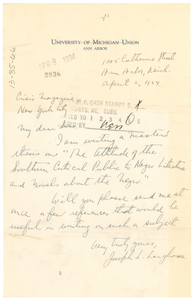 University of Michigan Union
Ann Arbor
13-35-66
1105 Catherine Street
Ann Arbor, Mich.
April 2, 1934
APR 9 1934
2834
Crisis Magazine
New York City
My dear
I am writing a master's
thesis on "The Attitude of the
Southern Critical Public to Negro Literature
and Novels about the Negro."
Will you please send me at
once a few references that would be
useful in writing on such a subject
Very truly yours,
Joseph L. Langhorne